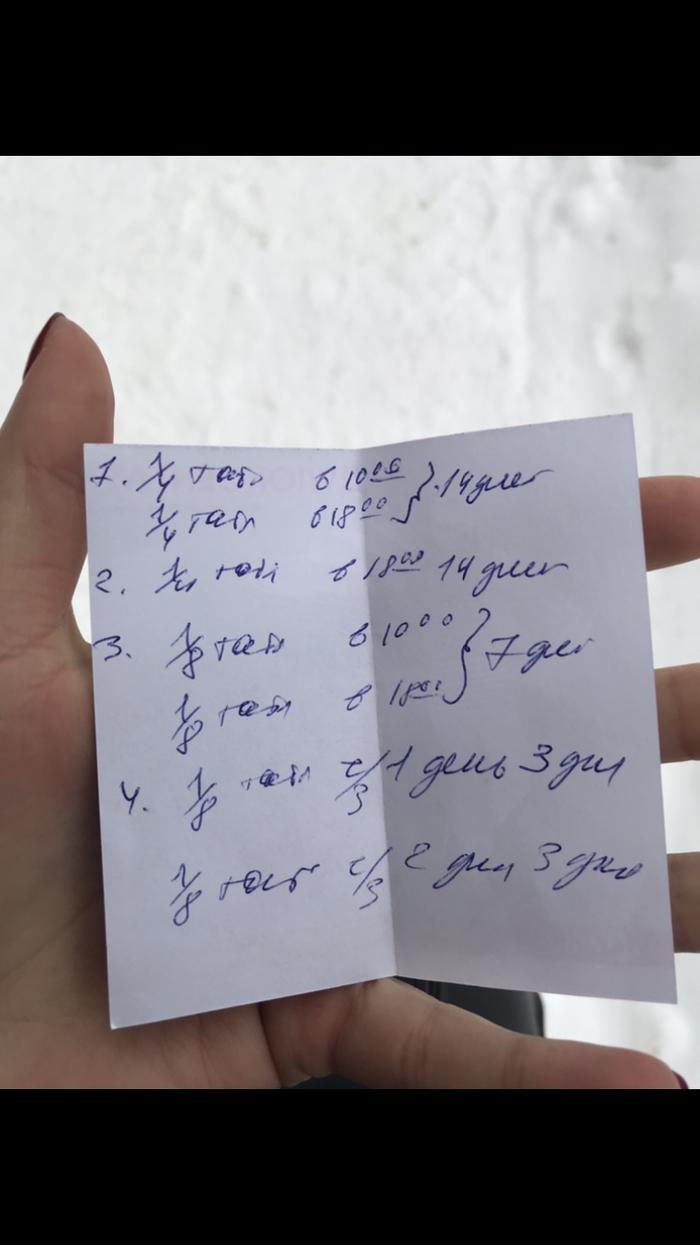 1. 1/4 табл в 10 00 } 14 дней
1/4 табл в 18 00
2. 1/4 табл в 18 00 14 дней
3. 1/8 табл в 10 00 } 7 дней
1/8 табл в 18 00
4. 1/8 табл ч/з 1 день 3 дня
1/8 табл ч/з 2 дня 3 дня